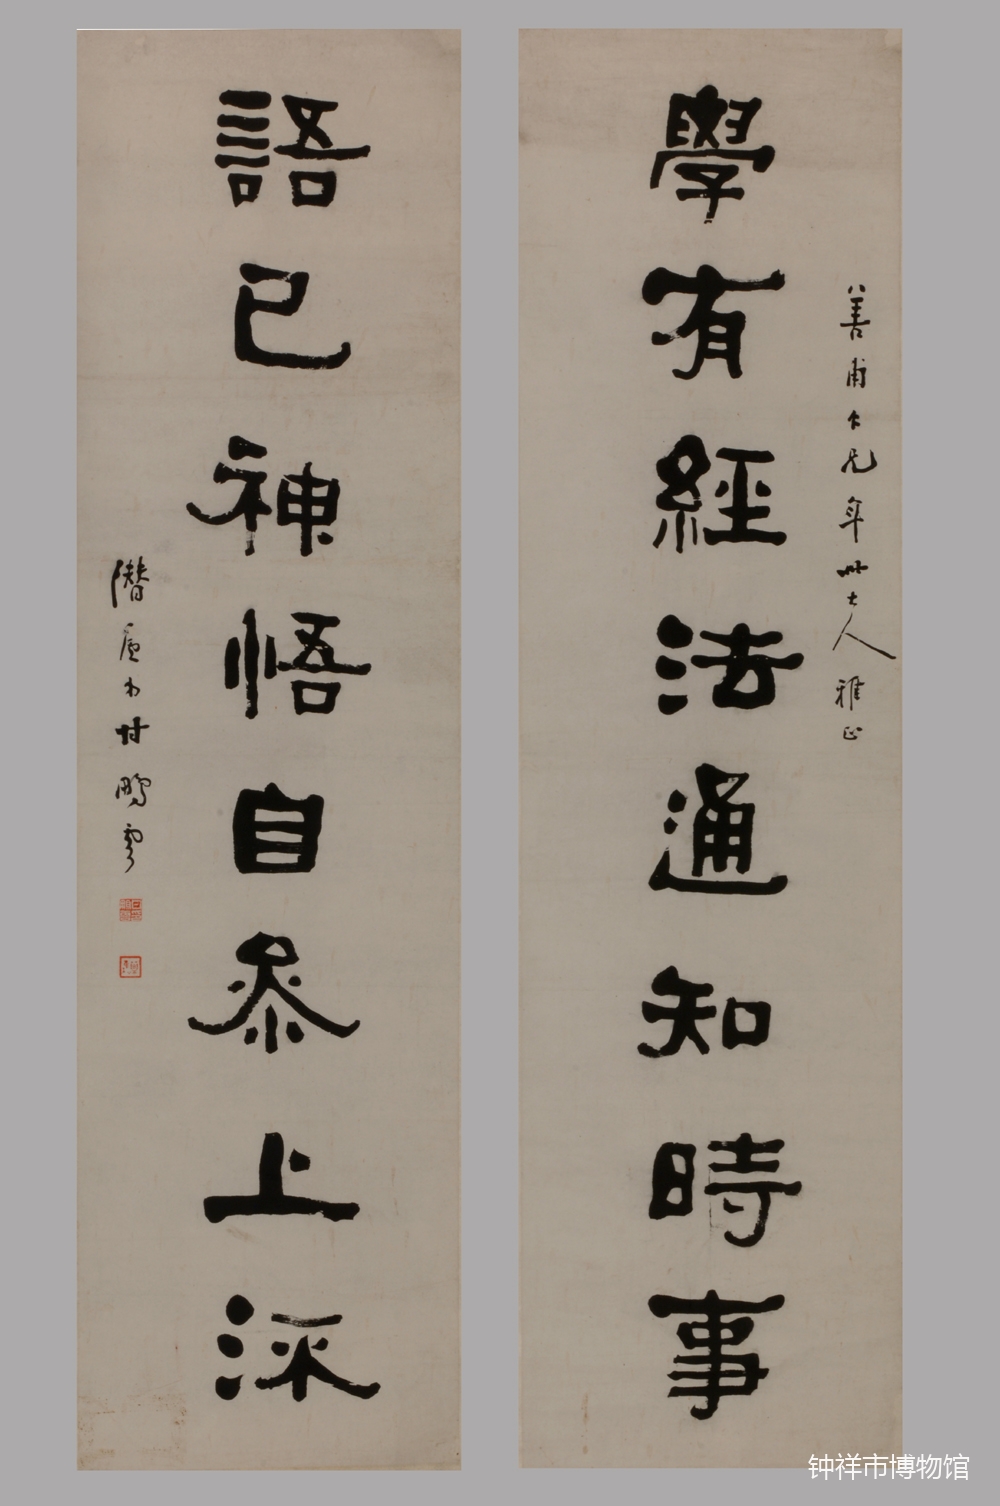 善甫仁兄年世大人雅正
學有經法通知時事
語已神悟自參上流
潛廬弟甘鵬雲
钟祥市博物馆